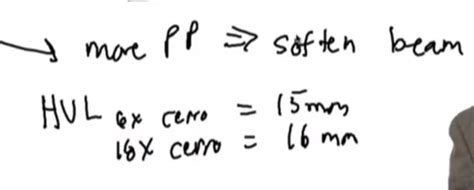 → more PP ⇒ soften beam
HVL 6x cerro = 15mm
18x cerro = 16 mm